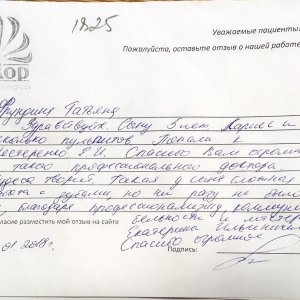 1825
Уважаемые пациенты!
Пожалуйста, оставьте отзыв о нашей работе
КОР
Татьяна
Здравствуйте. Сыну 5 лет Кариес и
пульпитов. Попали к
Нестеренко Е.И. Спасибо Вам огромное
такого профессионального доктора
Такая у меня сложная
с зубами, но ни разу не было
Благодаря профессионализму,
и
Екатерины Ильиничны
Спасибо огромное
согласие разместить мой отзыв на сайте
01.2019г.
Подпись: